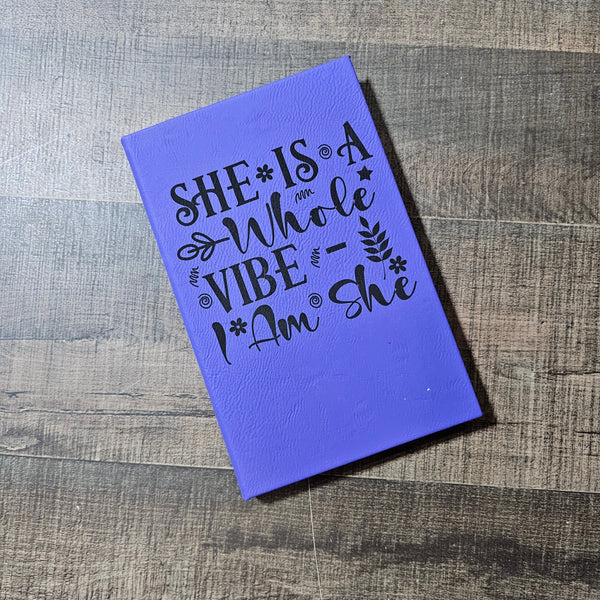 SHE IS A
Whole
VIBE -
I Am She